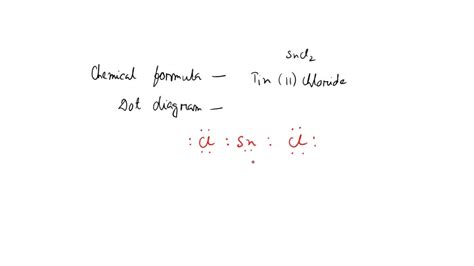 SnCl2
Chemical formula — Tin (II) Chloride
Dot diagram —
: Cl : Sn : Cl :